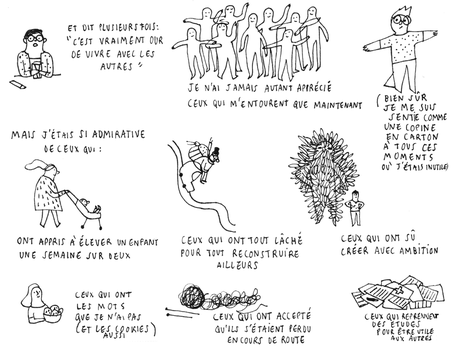 ET DIT PLUSIEURS FOIS:
"C'EST VRAIMENT DUR
DE VIVRE AVEC LES
AUTRES"
JE N'AI JAMAIS AUTANT APPRÉCIÉ
CEUX QUI M'ENTOURENT QUE MAINTENANT
(BIEN SÛR
JE ME SUIS
SENTIE COMME
UNE COPINE
EN CARTON
À TOUS CES
MOMENTS
OÙ J'ÉTAIS INUTILE)
MAIS J'ÉTAIS SI ADMIRATIVE
DE CEUX QUI:
ONT APPRIS À ÉLEVER UN ENFANT
UNE SEMAINE SUR DEUX
CEUX QUI ONT TOUT LÂCHÉ
POUR TOUT RECONSTRUIRE
AILLEURS
CEUX QUI ONT SÛ
CRÉER AVEC AMBITION
CEUX QUI ONT
LES MOTS
QUE JE N'AI PAS
(ET LES COOKIES)
AUSSI
CEUX QUI ONT ACCEPTÉ
QU'ILS S'ÉTAIENT PERDU
EN COURS DE ROUTE
CEUX QUI REPRENNENT
DES ÉTUDES
POUR ÊTRE UTILE
AUX AUTRES